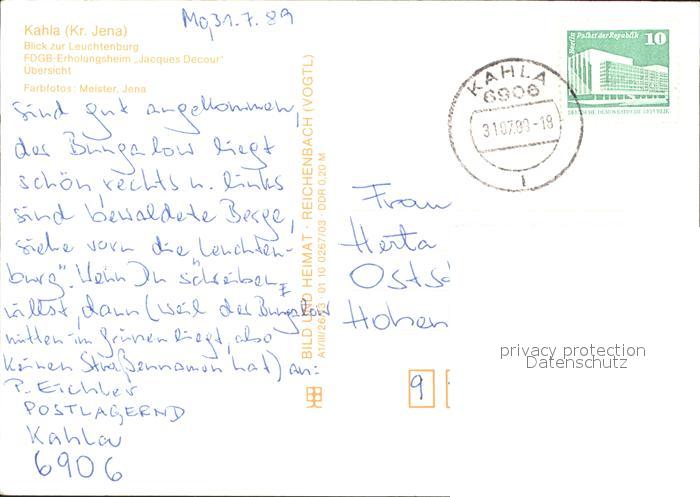 Mo, 31.7.89
Kahla (Kr. Jena)
Blick zur Leuchtenburg
FDGB-Erholungsheim „Jacques Decour"
Übersicht
Farbfotos: Meister, Jena
sind gut angekommen,
der Bungalow liegt
schön rechts u. links
sind bewaldete Berge,
siehe vorn die „Leuchten-
burg". Wenn Du schreiben
willst, dann (weil der Bungalow
mitten im Grünen liegt, also
keinen Straßennamen hat) an:
P. Eichler
POSTLAGERND
Kahla
6906
BILD UND HEIMAT · REICHENBACH (VOGTL)
A1/III/26/13 01 10 0267/03 DDR 0,20 M
Berlin Palast der Republik
10
DEUTSCHE DEMOKRATISCHE REPUBLIK
KAHLA
6906
31.07.89-18
1
Frau
Herta
Hohen
9
privacy protection
Datenschutz